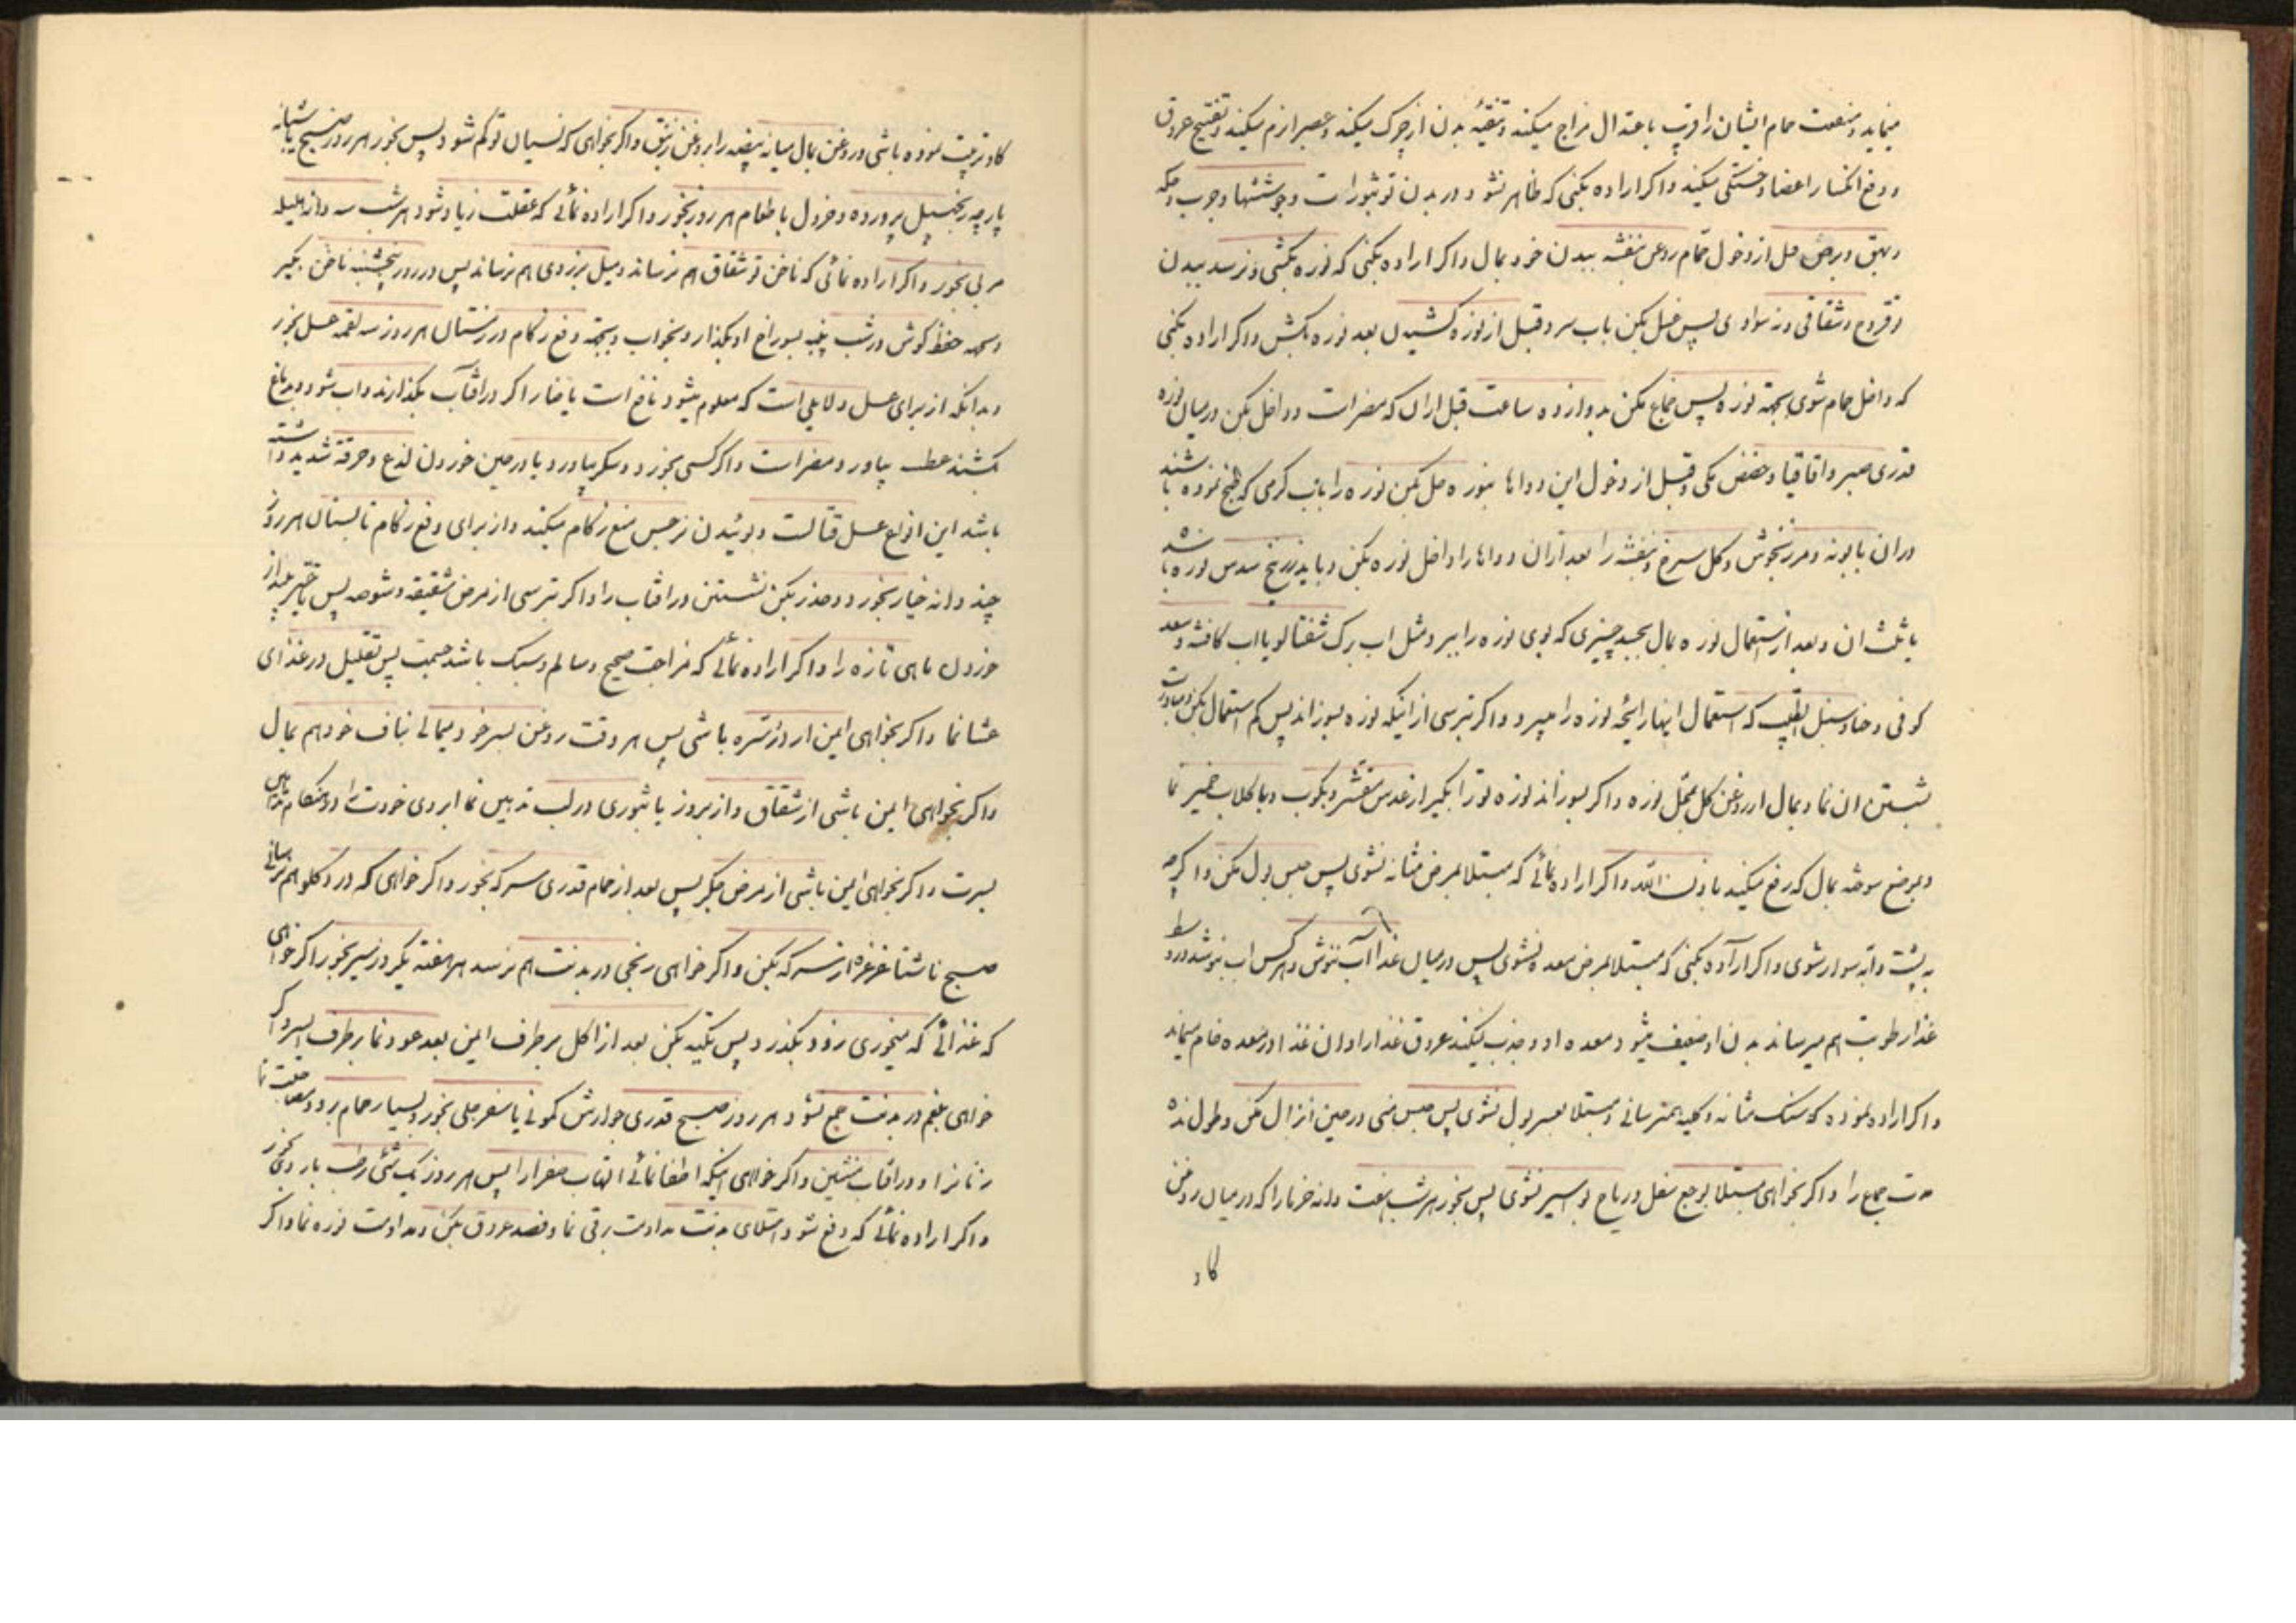 مینماید و منفعت حمام ایشان را قریب باعتدال مزاج میکند و تنقیه بدن از چرک میکند و عصب را نرم میکند و تفتیح عروق
و رفع انکسار اعضا و خستگی میکند و اکر اراده بکنی که ظاهر نشود در بدن تو بثورات و جوششها و جرب و حکه
و بهق و برص قبل از دخول حمام روغن بنفشه ببدن خود بمال و اکر اراده بکنی که نوره بکشی و نرسد ببدن
تو قروح و شقاقی و نه سوادی پس غسل بکن باب سرد قبل از نوره کشیدن بعد نوره بکش و اکر اراده بکنی
که داخل حمام شوی بجهة نوره پس جماع مکن بدوازده ساعت قبل از ان که مضر است و داخل بکن در میان نوره
قدری صبر و اقاقیا و حضض مکی و قبل از دخول این دواها بنوره حل بکن نوره را باب کرمی که طبخ نموده باشند
در ان بابونه و مرزنجوش و کل سرخ و بنفشه را بعد از ان دواها را داخل نوره بکن و باید زرنیخ سدس نوره باشد
یا ثلث ان و بعد از استعمال نوره بمال بجسد چیزی که بوی نوره را ببرد مثل اب برک شفتالو یا اب کافشه و سعد
کوفی و حنا و سنبل الطیب که استعمال اینها رایحه نوره را میبرد و اکر بترسی از اینکه نوره بسوزاند پس کم استعمال بکن و مبادرت
بشستن ان نما و بمال از روغن کل بمحل نوره و اکر بسوزاند نوره تو را بکیر از عدس مقشر و بکوب و با کلاب خمیر نما
و بموضع سوخته بمال که رفع میکند باذن الله و اکر اراده نمائی که مبتلا بمرض مثانه نشوی پس حبس بول مکن و اکرچه
به پشت دابه سوار شوی و اکر اراده بکنی که مبتلا بمرض معده نشوی پس در میان غذا آب ننوش و هر کس اب بنوشد در وسط
غذا رطوبت بهم میرساند بدن او و ضعیف میشود معده او و جذب نمیکند عروق غذا را و ان غذا در معده خام میماند
و اکر اراده نموده که سنک مثانه و کلیه بهم نرسانی و مبتلا بعسر بول نشوی پس حبس منی در حین انزال مکن و طول نده
مدت جماع را و اکر بخواهی مبتلا بوجع سفل و ریاح بواسیر نشوی پس بخور هر شب هفت دانه خرما را که در میان روغن
کاو
کاو تربیت نموده باشی و روغن بمال میانه بیضه را بروغن زنبق و اکر بخواهی که نسیان تو کم شود پس بخور هر روز صبح یا شبانه
پارچه زنجبیل پرورده و خردل با طعام هر روز بخور و اکر اراده نمائی که عقلت زیاد شود هر شب سه دانه هلیله
مربی بخور و اکر اراده نمائی که ناخن تو شقاق بهم نرساند و میل بزردی بهم نرساند پس در روز پنجشنبه ناخن بکیر
و بجهة حفظ کوش در شب پنبه بسوراخ او بکذار و بخواب و بجهة دفع زکام در زمستان هر روز سه لقمه عسل بخور
و بدانکه از برای عسل دلایلی است که معلوم میشود نافع است یا ضار اکر در افتاب بکذارند و اب شود و بدماغ
بکشند عطسه بیاورد مضر است و اکر کسی بخورد و سکر بیاورد یا در حین خوردن لذع و حرقة شدید داشته
باشد این انواع عسل قتالست و بوئیدن نرجس منع زکام میکند و از برای دفع زکام تابستان هر روز
چند دانه خیار بخور و حذر بکن نشستن در افتاب را و اکر بترسی از مرض شقیقه و شوصه پس تاخیر مینداز
خوردن ماهی تازه را و اکر اراده نمائی که مزاجت صحیح و سالم و سبک باشد جسمت پس تقلیل در غذای
عشا نما و اکر بخواهی ایمن از درد سره باشی پس هر وقت روغن بسر خود میمالی بناف خود هم بمال
و اکر بخواهی ایمن باشی از شقاق و از بروز باثوری در لب تدهین نما ابروی خودت را در هنکام تدهین
بسرت و اکر بخواهی ایمن باشی از مرض جکر پس بعد از حمام قدری سرکه بخور و اکر خواهی که درد کلو بهم نرسانی
صبح ناشتا غرغره از سرکه بکن و اکر خواهی رنجی در بدنت بهم نرسد هر هفته یکروز سیر بخور اکر خواهی
که غذائی که میخوری زود بکذرد پس تکیه بکن بعد از اکل بر طرف ایمن بعد عود نما بر طرف ایسر و اکر
خواهی بلغم در بدنت جمع نشود هر روز صبح قدری جوارش کمونی یا سفرجلی بخور و بسیار حمام برو و مضاجعت نما
زنانرا و در افتاب بنشین و اکر خواهی اینکه اطفا نمائی التهاب صفرا را پس هر روز یک شئ رطب بارد بخور
و اکر اراده نمائی که دفع شود امتلای بدنت مداومت برقی نما و فصد عروق بکن و مداومت نوره نما و اکر